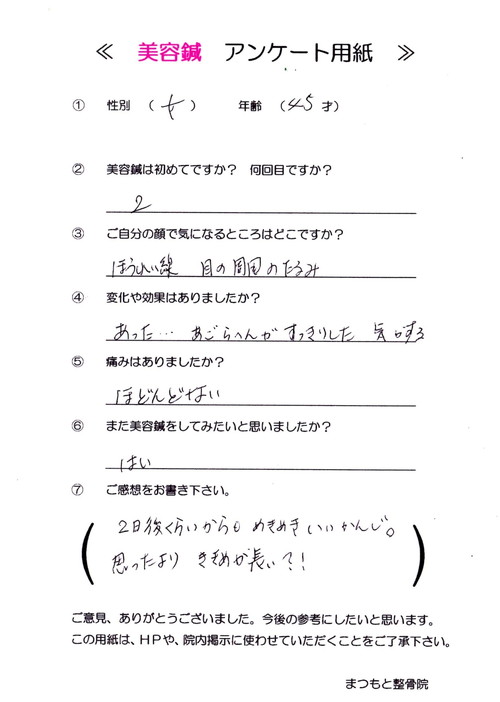 ≪ 美容鍼 アンケート用紙 ≫
① 性別 （ 女 ） 年齢 （ 45 才）
② 美容鍼は初めてですか？ 何回目ですか？
2
③ ご自分の顔で気になるところはどこですか？
ほうれい線 目の周囲のたるみ
④ 変化や効果はありましたか？
あった… あごらへんがすっきりした 気がする
⑤ 痛みはありましたか？
ほどんどない
⑥ また美容鍼をしてみたいと思いましたか？
はい
⑦ ご感想をお書き下さい。
2日後くらいから めきめきいいかんじ。
思ったより ききめが長い?!
ご意見、ありがとうございました。今後の参考にしたいと思います。
この用紙は、ＨＰや、院内掲示に使わせていただくことをご了承下さい。
まつもと整骨院